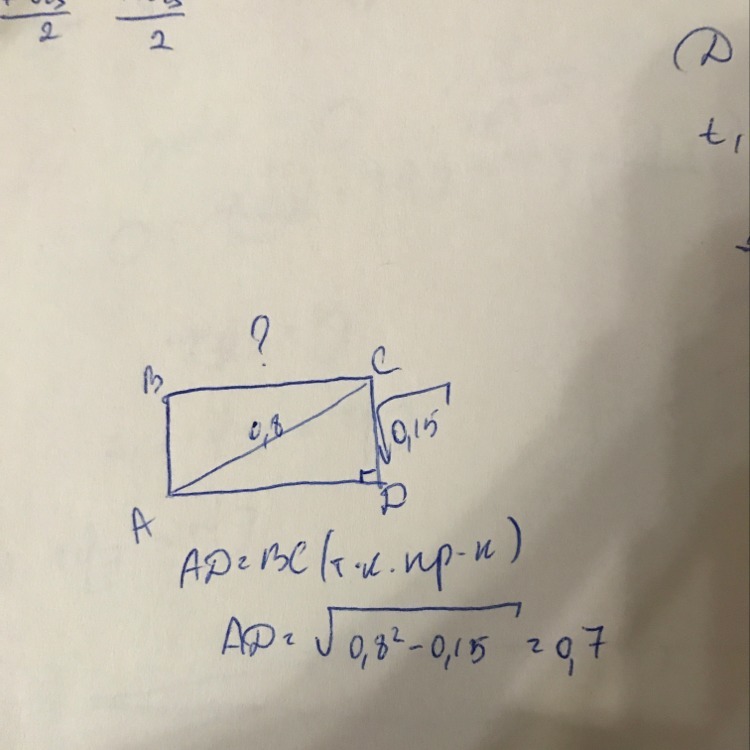 2 2
D
t₁
?
B C
0,8 √0,15
A D
AD = BC (т.к. пр-к)
AD = √0,8² - 0,15 = 0,7